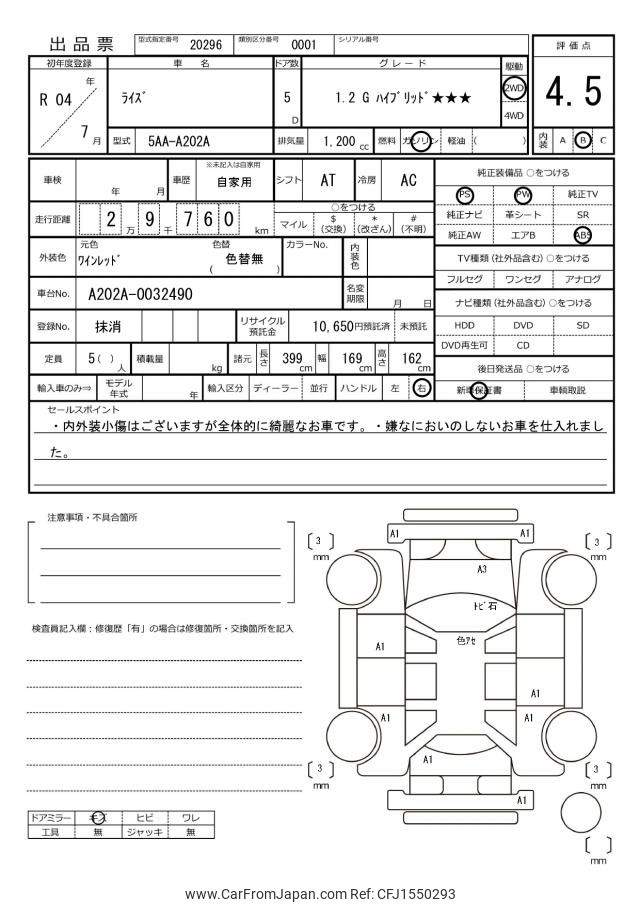 出品票 型式指定番号 20296 類別区分番号 0001 シリアル番号
評価点
4.5
内装 A B C
初年度登録 車名 ドア数 グレード 駆動
R 04 年 7 月 ﾗｲｽﾞ 5 D 1.2 G ﾊｲﾌﾞﾘｯﾄﾞ★★★ 2WD
4WD
型式 5AA-A202A 排気量 1,200 cc 燃料 ガソリン 軽油 ( )
車検 年 月 車歴 ※未記入は自家用 自家用 シフト AT 冷房 AC
走行距離 2 万 9 千 7 6 0 km
○をつける
マイル $(交換) *(改ざん) #(不明)
外装色 元色 ﾜｲﾝﾚｯﾄﾞ 色替 ( 色替無 ) カラーNo. 内装色
車台No. A202A-0032490 名変期限 月 日
登録No. 抹消 リサイクル預託金 10,650円預託済 未預託
定員 5( )人 積載量 kg 諸元 長さ 399 cm 幅 169 cm 高さ 162 cm
輸入車のみ⇒ モデル年式 年 輸入区分 ディーラー 並行 ハンドル 左 右
純正装備品 ○をつける
PS PW 純正TV
純正ナビ 革シート SR
純正AW エアB ABS
TV種類 (社外品含む) ○をつける
フルセグ ワンセグ アナログ
ナビ種類 (社外品含む) ○をつける
HDD DVD SD
DVD再生可 CD
後日発送品 ○をつける
新車保証書 車輌取説
セールスポイント
・内外装小傷はございますが全体的に綺麗なお車です。・嫌なにおいのしないお車を仕入れまし
た。
注意事項・不具合箇所
検査員記入欄：修復歴「有」の場合は修復箇所・交換箇所を記入
A1 A1
〔 3 〕mm 〔 3 〕mm
A3
ﾄﾋﾞ石
A1 色ｱｾ
A1
A1 A1
A1
〔 3 〕mm 〔 3 〕mm
A1
〔 〕mm
ドアミラー キズ ヒビ ワレ
工具 無 ジャッキ 無
www.CarFromJapan.com Ref: CFJ1550293